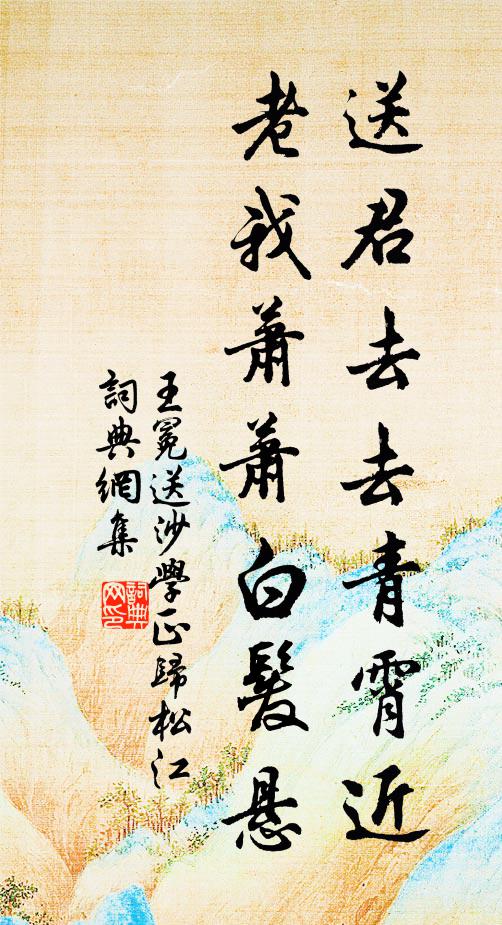 送君去去青霄近
老我蕭蕭白髮懸
王冕送沙學正歸松江
詞典網集
詞典網印